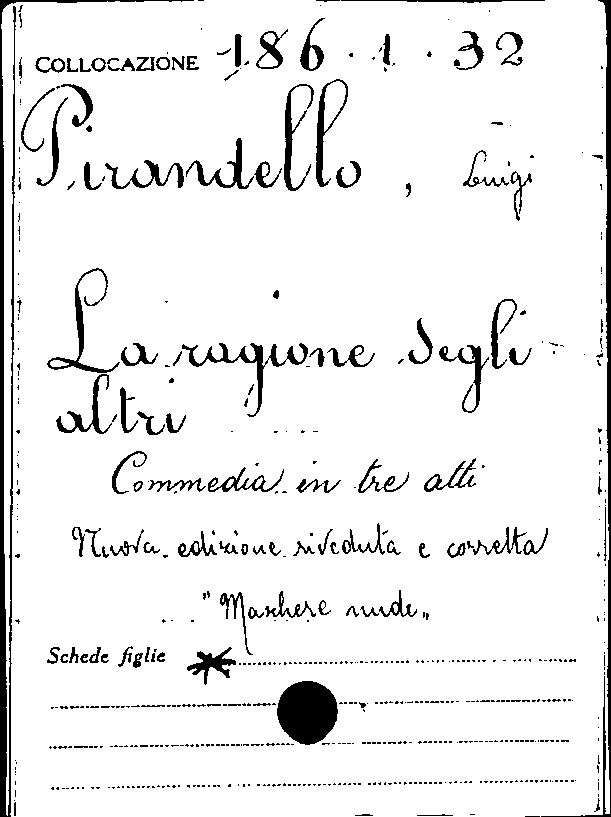 COLLOCAZIONE 186.1.32
Pirandello, Luigi
La ragione degli
altri
Commedia in tre atti
Nuova edizione riveduta e corretta
"Maschere nude„
Schede figlie